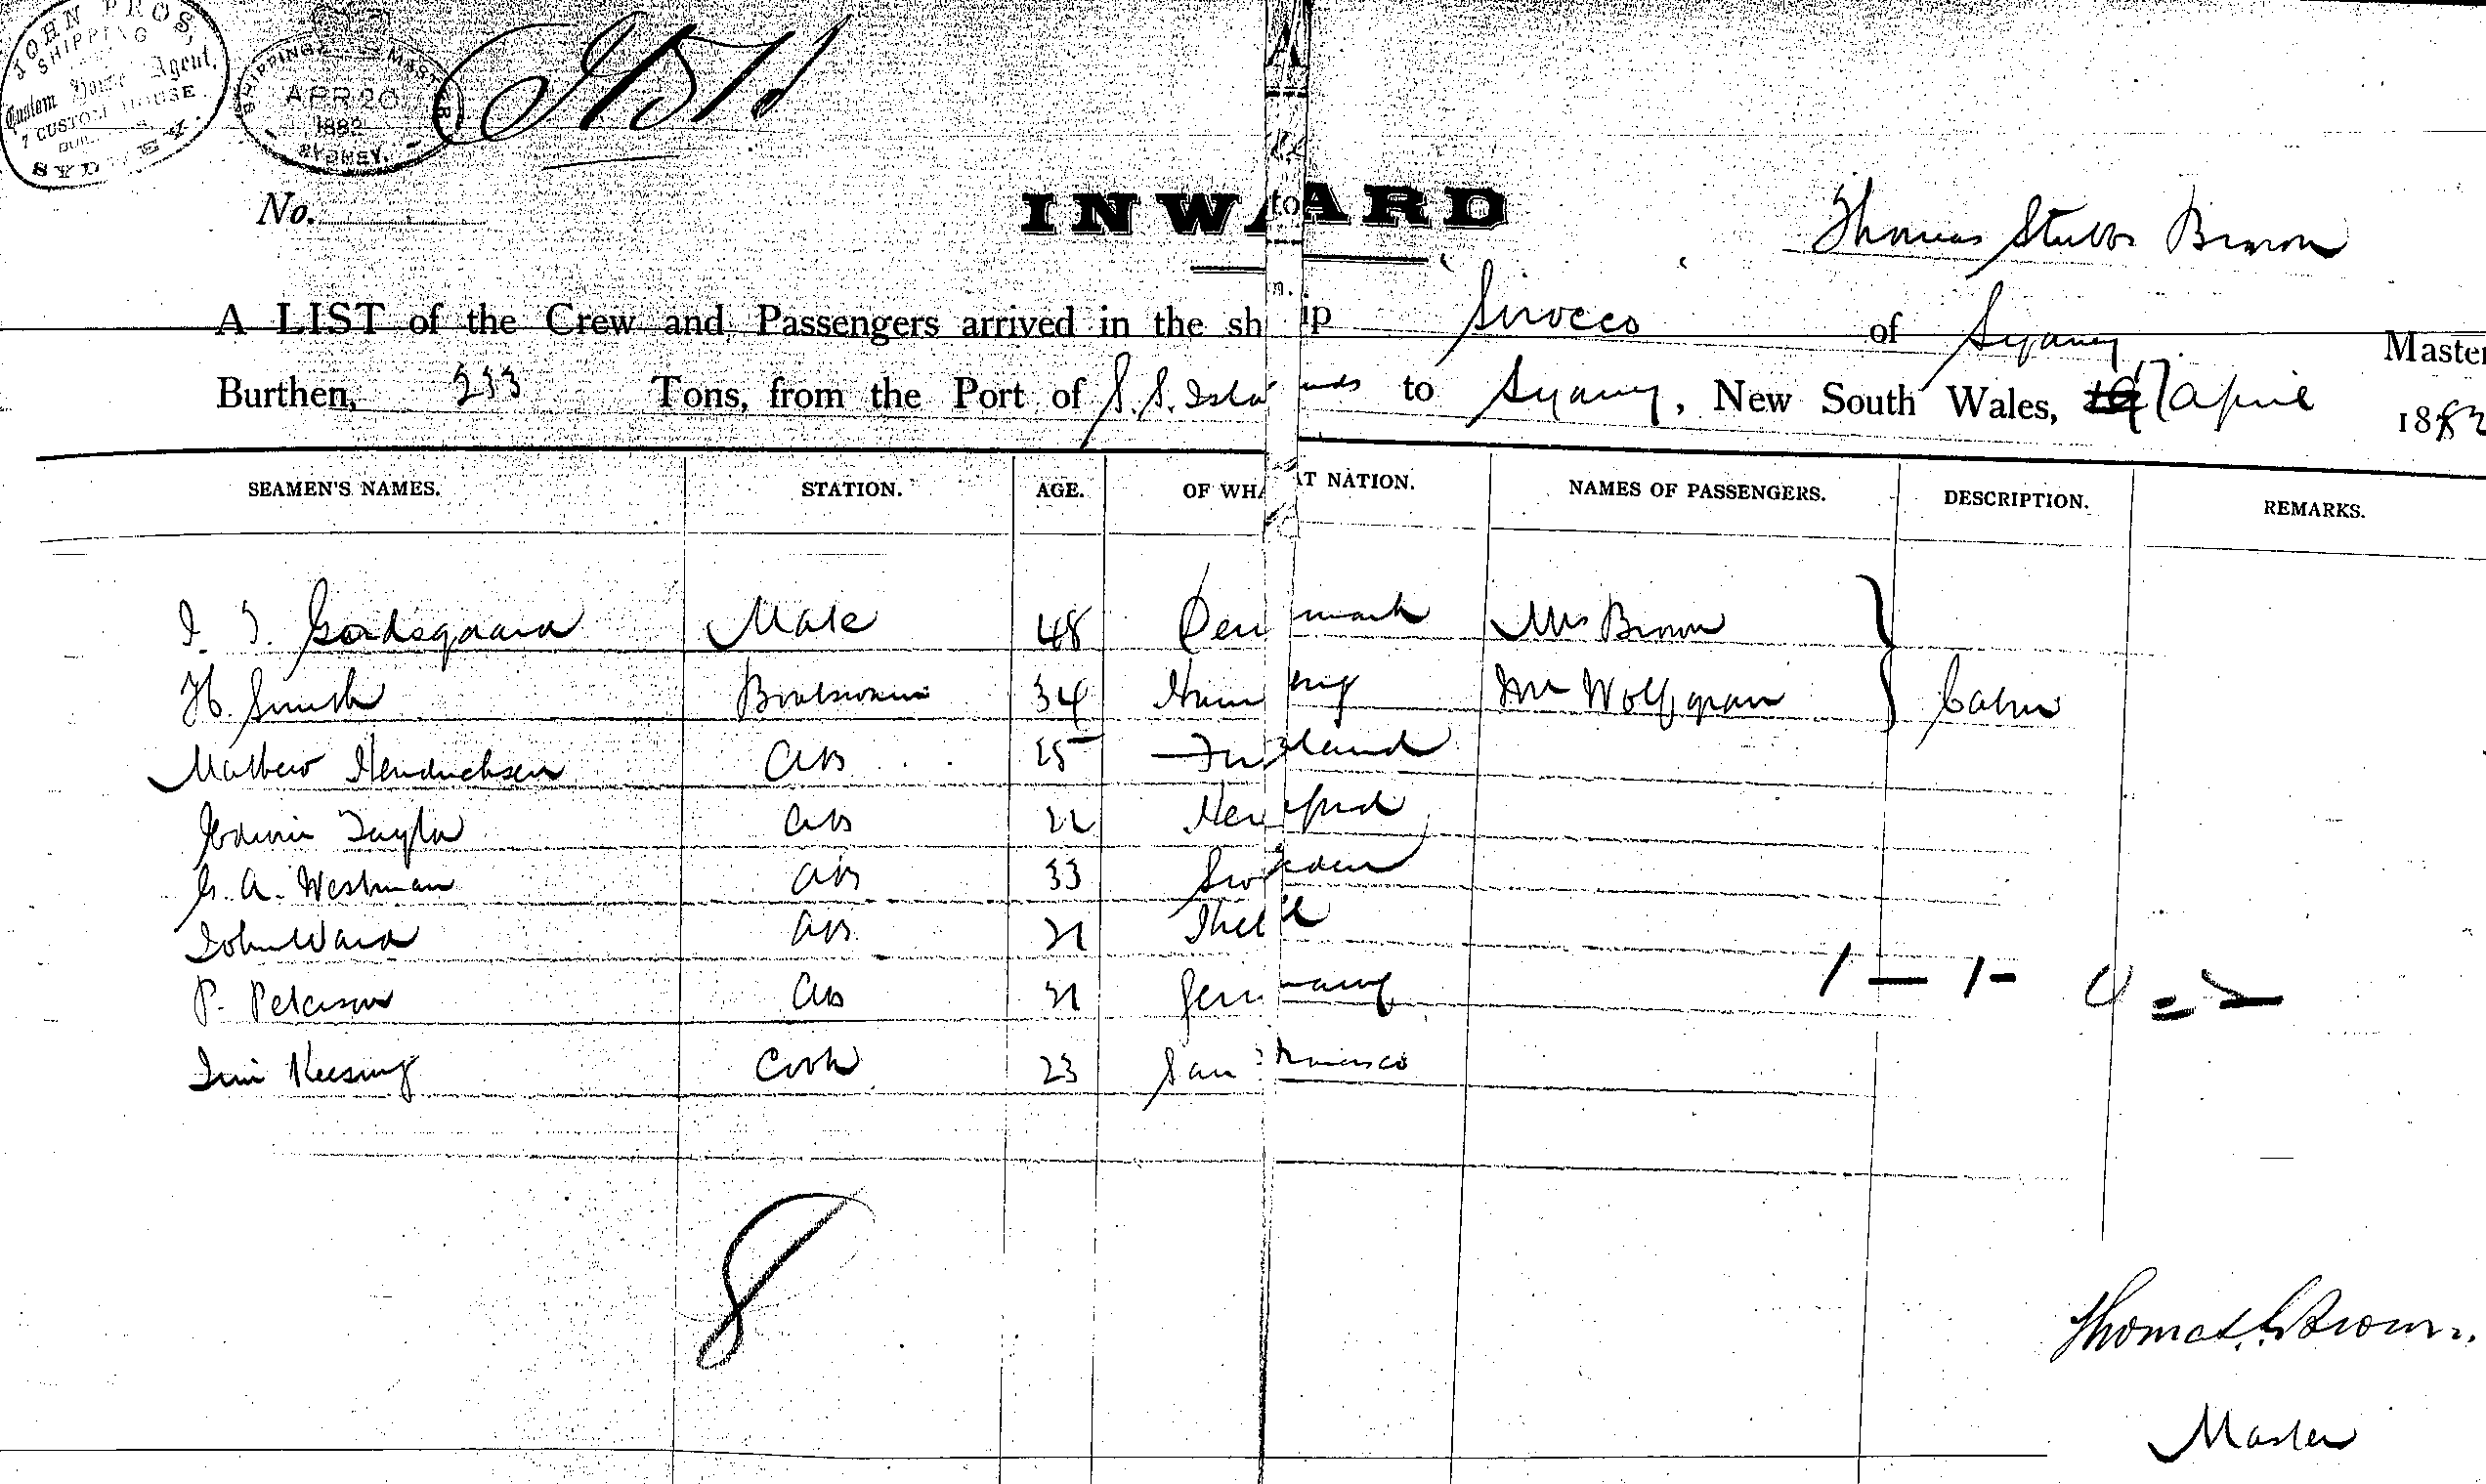 JOHN PROS,
SHIPPING
Custom House Agent,
7 CUSTOM HOUSE
SYDNEY.
SHIPPING MASTER
APR 20
1882
SYDNEY.
No.
INWARD
Thomas Stubbs Brown
A LIST of the Crew and Passengers arrived in the ship Sirocco of Sydney Master
Burthen, 233 Tons, from the Port of S. S. Islands to Sydney, New South Wales, 17 April 1882
SEAMEN'S NAMES. STATION. AGE. OF WHAT NATION. NAMES OF PASSENGERS. DESCRIPTION. REMARKS.
I. T. Gardsgaard Mate 48 Denmark Mrs Brown
H. Smith Boatswain 34 Mr Wolfgram Cabin
Mathew Hendrichsen AB 25 Finland
Edwin Taylor AB 22 Hereford
G. A. Westman AB 33 Sweden
John Ward AB 21
P. Peterson AB 21 Germany
Jim Keesing Cook 23 San Francisco
1 — 1 - 0 = 2
8
Thomas S. Brown.
Master